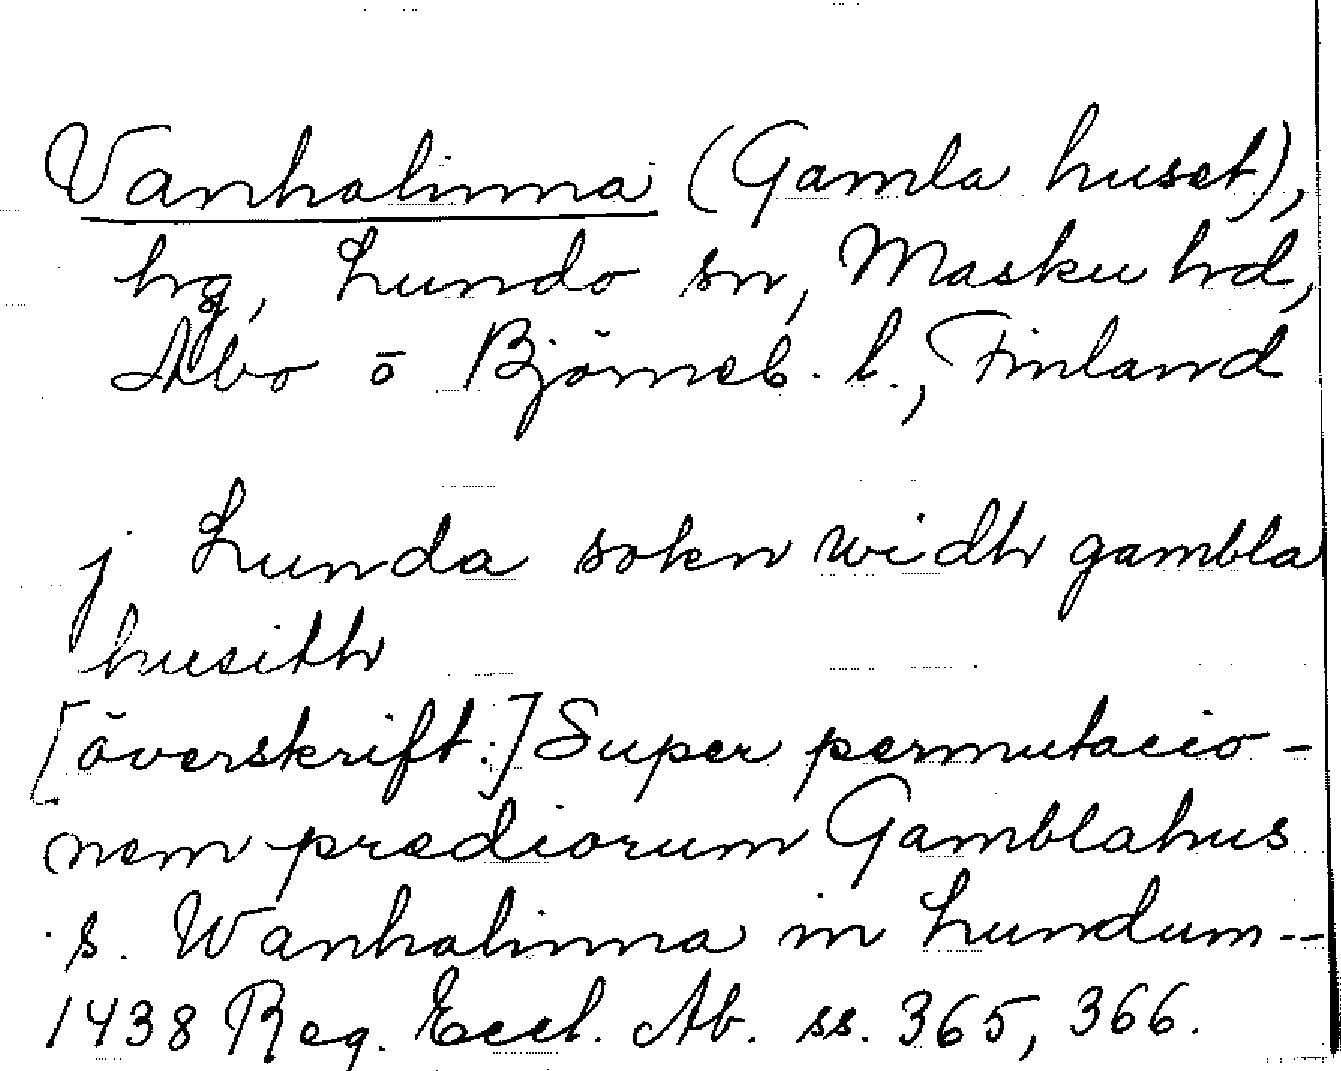 Vanhalinna (Gamla huset),
hg, Lundo sn, Masku hd,
Åbo o Björneb. l., Finland
j Lunda sokn widh gambla
husith
[överskrift:] Super permutacio-
nem prediorum Gamblahus
s. Wanhalinna in Lundum--
1438 Reg. Eccl. Ab. ss. 365, 366.